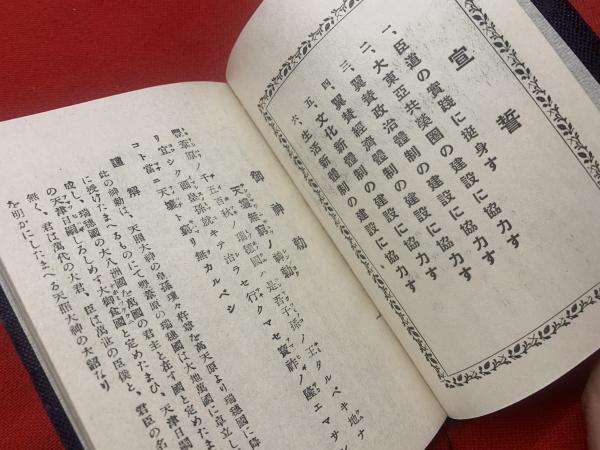 宣誓
一、臣道の實踐に挺身す
一、大東亞共榮圈の建設に協力す
二、翼贊政治體制の建設に協力す
三、翼贊經濟體制の建設に協力す
四、文化新體制の建設に協力す
五、生活新體制の建設に協力す
六、
御神勅
天壤無窮の神勅
豐葦原ノ千五百秋ノ瑞穗國ハ是吾子孫ノ王タルベキ地ナ
リ宜シク爾皇孫就キテ治ラセ行クマセ寶祚ノ隆エマサン
コト當ニ天壤ト窮リ無カルベシ
謹解
此の神勅は、天照大神の皇孫瓊々杵尊を高天原より瑞穗國に降
に授けたまへるものにて、豐葦原の瑞穗國は大地萬國に卓立し
成し、瑞穗國の大八洲國を萬國の君主と在す國と定めたま
の天津日嗣しろしめて大御食國と定めたまひ、天津日嗣
無く、君は萬代の大君、臣は萬世の臣僕と、君臣の名
を明かにしたまへる天照大神の大詔なり